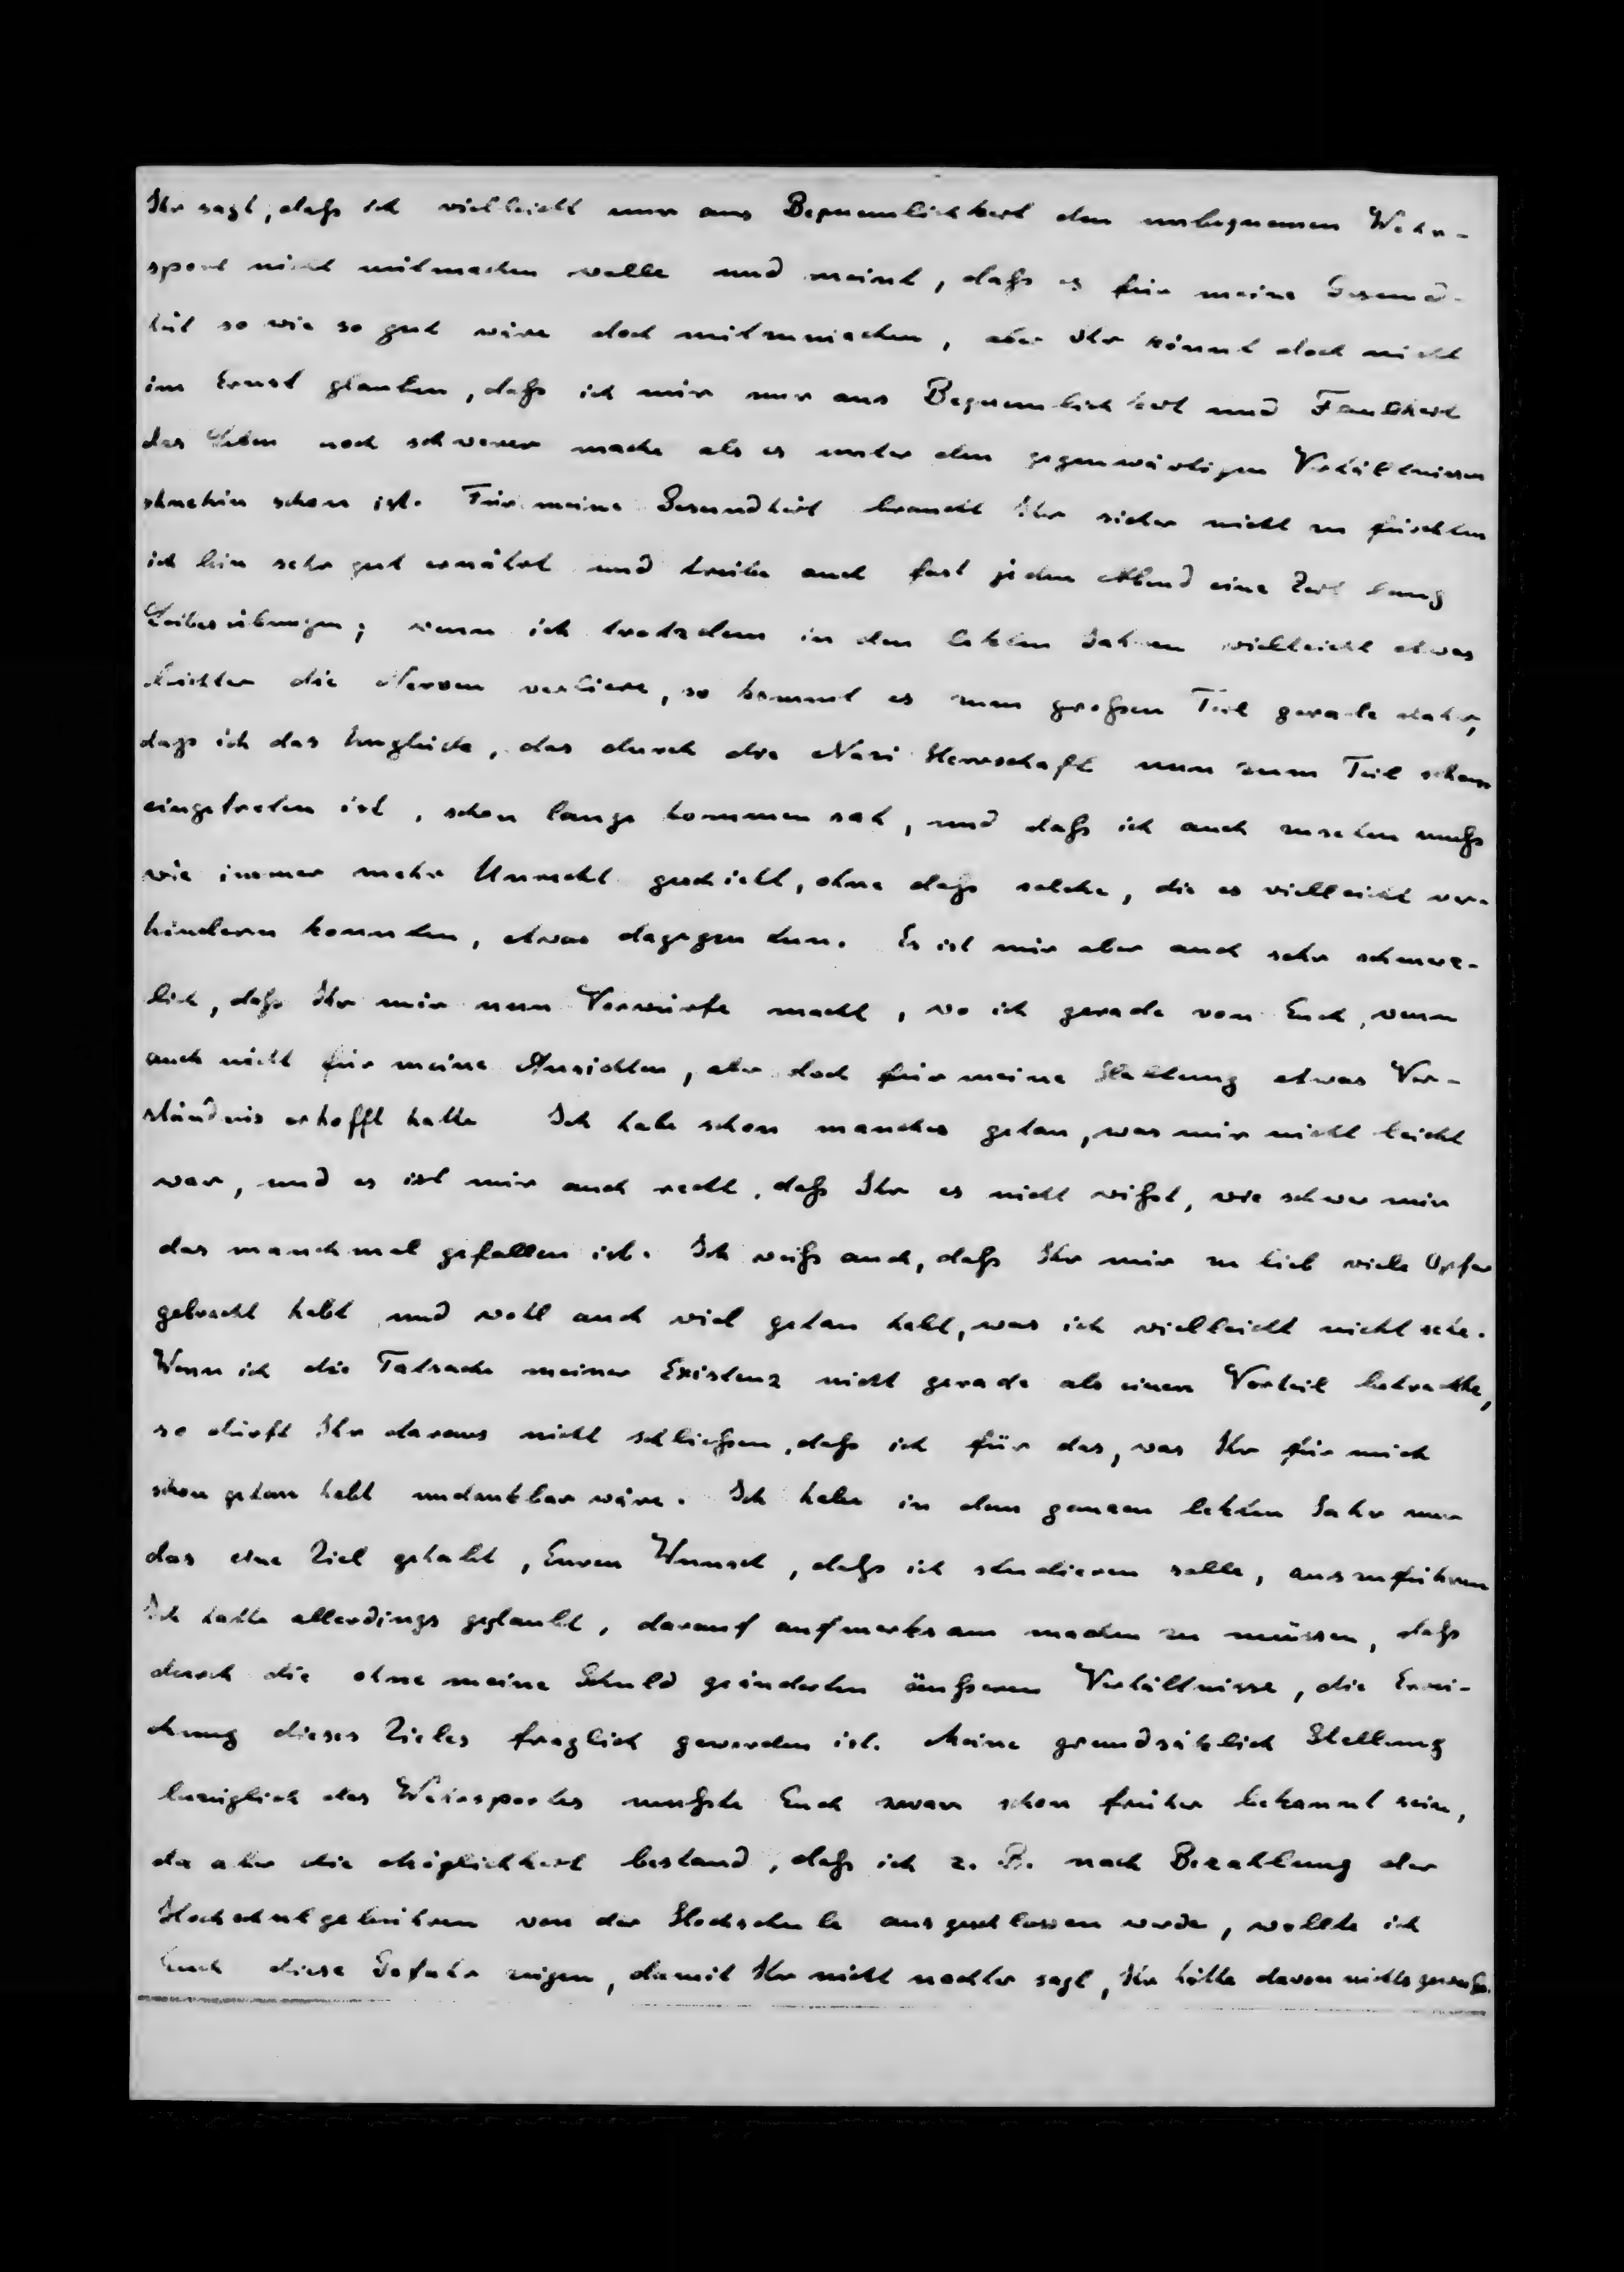 Ihr sagt, daß ich vielleicht nur aus Bequemlichkeit den unbequemen Wehr-
sport nicht mitmachen wolle und meint, daß es für meine Gesund-
heit so wie so gut wäre doch mitzumachen, aber Ihr könnt doch nicht
im Ernst glauben, daß ich mir nur aus Bequemlichkeit und Faulheit
das Leben noch schwerer mache als es unter den gegenwärtigen Verhältnissen
ohnehin schon ist. Für meine Gesundheit braucht Ihr sicher nicht zu fürchten
ich bin sehr gut ernährt und treibe auch fast jeden Abend eine Zeit lang
Leibesübungen; wenn ich trotzdem in den letzten Jahren vielleicht etwas
leichter die Nerven verliere, so kommt es zum großen Teil gerade daher,
daß ich das Unglück, das durch die Nazi Herrschaft nun zum Teil schon
eingetreten ist, schon lange kommen sah, und daß ich auch zusehen muß
wie immer mehr Unrecht geschieht, ohne daß solche, die es vielleicht ver-
hindern konnten, etwas dagegen tun. Es ist mir aber auch sehr schmerz-
lich, daß Ihr mir nun Vorwürfe macht, wo ich gerade von Euch, wenn
auch nicht für meine Ansichten, aber doch für meine Stellung etwas Ver-
ständnis erhofft hatte Ich habe schon manches getan, was mir nicht leicht
war, und es ist mir auch recht, daß Ihr es nicht wißt, wie schwer mir
das manchmal gefallen ist. Ich weiß auch, daß Ihr mir zu lieb viele Opfer
gebracht habt und wohl auch viel getan habt, was ich vielleicht nicht sehe.
Wenn ich die Tatsache meiner Existenz nicht gerade als einen Vorteil betrachte,
so dürft Ihr daraus nicht schließen, daß ich für das, was Ihr für mich
schon getan habt undankbar wäre. Ich habe in dem ganzen letzten Jahr nur
das eine Ziel gehabt, Euren Wunsch, daß ich studieren solle, auszuführen
Ich hatte allerdings geglaubt, darauf aufmerksam machen zu müssen, daß
durch die ohne meine Schuld geänderten äußeren Verhältnisse, die Errei-
chung dieses Zieles fraglich geworden ist. Meine grundsätzlich Stellung
bezüglich des Wehrsportes mußte Euch zwar schon früher bekannt sein,
da aber die Möglichkeit bestand, daß ich z. B. nach Bezahlung der
Hochschulgebühren von der Hochschule ausgeschlossen werde, wollte ich
Euch diese Gefahr zeigen, damit Ihr nicht nachher sagt, Ihr hätte davon nichts gewußt.